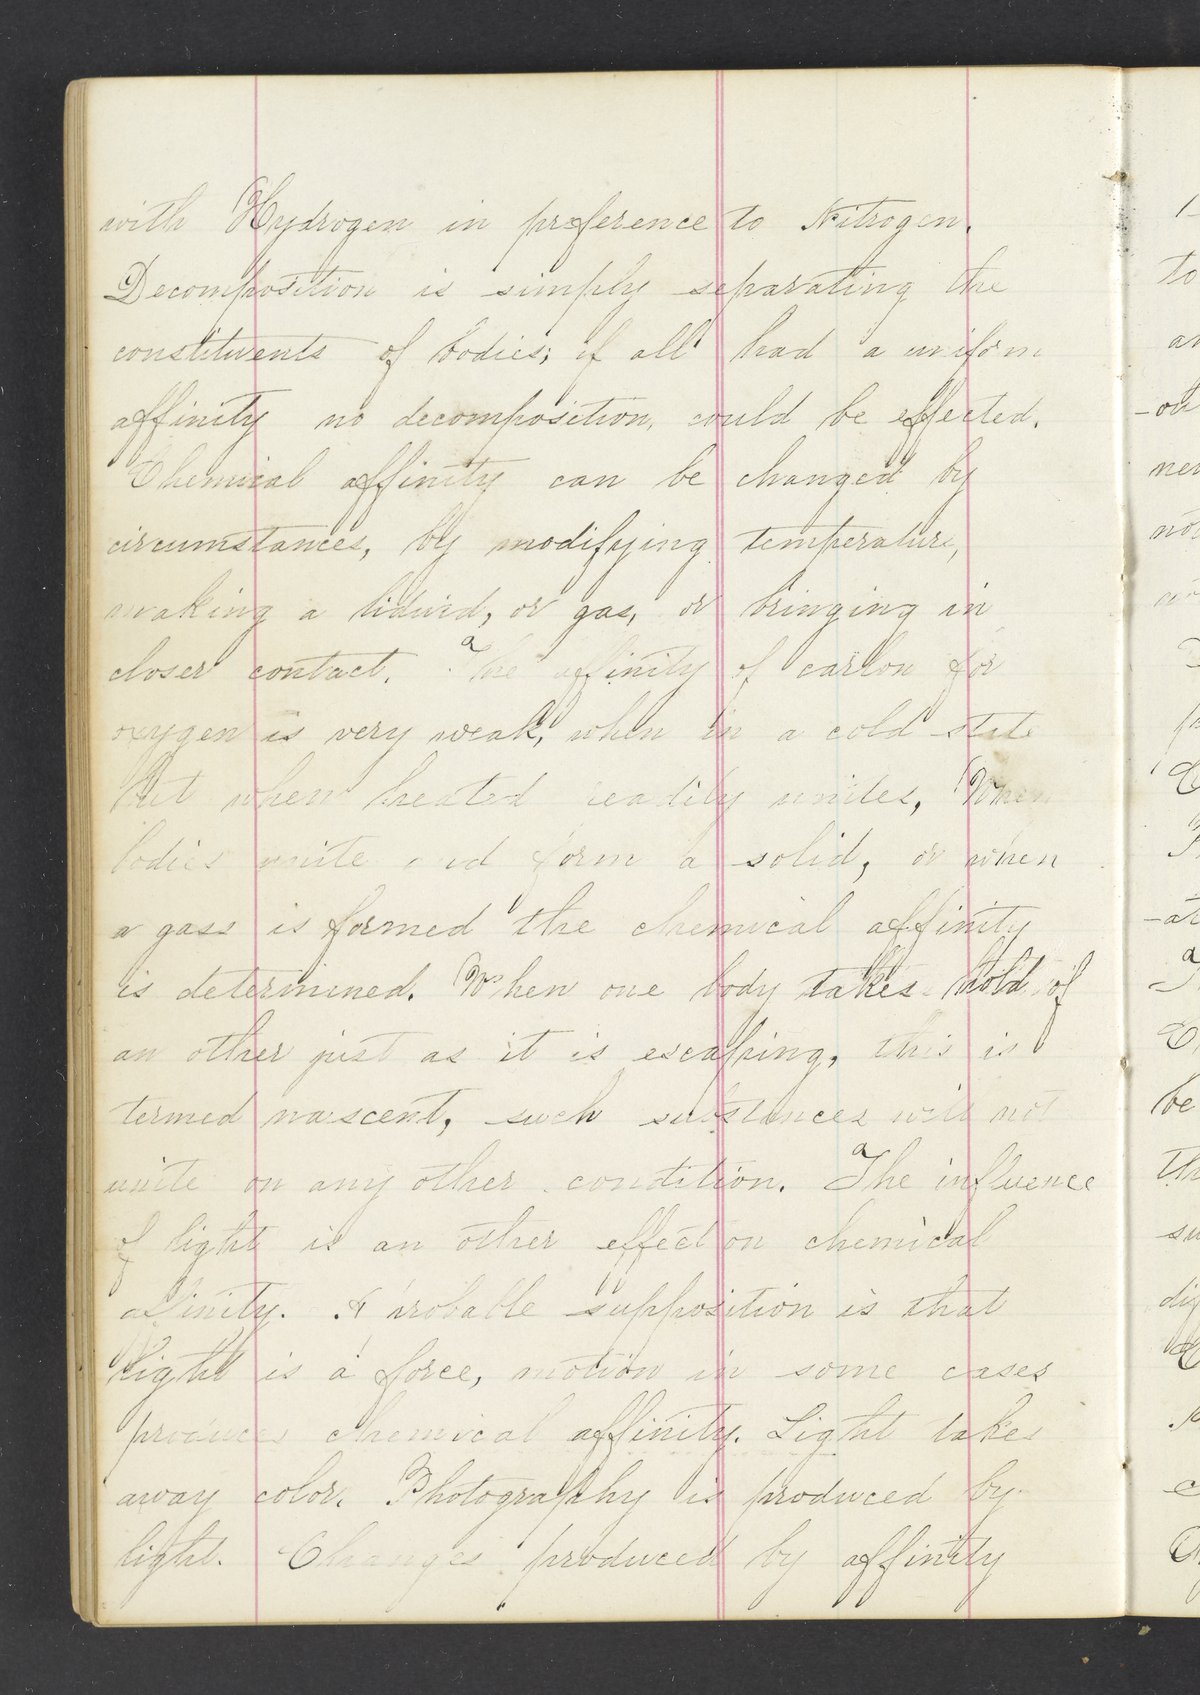 with Hydrogen in preference to Nitrogen.
Decomposition is simply separating the
constituents of bodies; if all had a uniform
affinity no decomposition, could be effected.
Chemical affinity can be changed by
circumstances, by modifying temperature,
making a liduid, or gas, or bringing in
closer contact. The affinity of carbon for
oxygen is very weak, when in a cold state
but when heated readily unites, When
bodies unite and form a solid, or when
a gass is formed the chemical affinity
is determined. When one body takes hold of
an other just as it is escaping, this is
termed nascent, such substances will not
unite on any other condition. The influence
of light is an other effect on chemical
affinity. A probable supposition is that
light is a force, motion in some cases
produces chemical affinity. Light takes
away color. Photography is produced by
light. Changes produced by affinity
to
-ou
nev
not
be
th